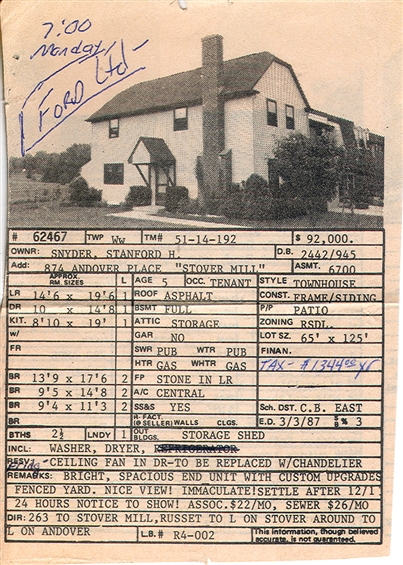 7:00
Monday
Ford Ltd
# 62467 TWP Ww TM# 51-14-192 $ 92,000.
OWNR: SNYDER, STANFORD H. D.B. 2442/945
Add: 874 ANDOVER PLACE "STOVER MILL" ASMT. 6700
APPROX. RM. SIZES L AGE 5 OCC. TENANT STYLE TOWNHOUSE
LR 14'6 x 19'6 1 ROOF ASPHALT CONST. FRAME/SIDING
DR 10 x 14'8 1 BSMT FULL P/P PATIO
KIT. 8'10 x 19' 1 ATTIC STORAGE ZONING RSDL.
w/ GAR NO LOT SZ. 65' x 125'
FR SWR PUB WTR PUB FINAN.
HTR GAS WHTR GAS TAX - $1344.00 yr
BR 13'9 x 17'6 2 FP STONE IN LR
BR 9'5 x 14'8 2 A/C CENTRAL
BR 9'4 x 11'3 2 SS&S YES Sch. DST. C.B. EAST
BR H-FACT. (@ SELLER) WALLS CLGS. E.D. 3/3/87 SB% 3
BTHS 2½ LNDY 1 OUT BLDGS. STORAGE SHED
INCL: WASHER, DRYER, REFRIGERATOR
RESV: CEILING FAN IN DR-TO BE REPLACED W/CHANDELIER
REMARKS: BRIGHT, SPACIOUS END UNIT WITH CUSTOM UPGRADES
FENCED YARD. NICE VIEW! IMMACULATE!SETTLE AFTER 12/1
24 HOURS NOTICE TO SHOW! ASSOC.$22/MO, SEWER $26/MO
DIR: 263 TO STOVER MILL,RUSSET TO L ON STOVER AROUND TO
L ON ANDOVER L.B.# R4-002 This information, though believed accurate, is not guaranteed.